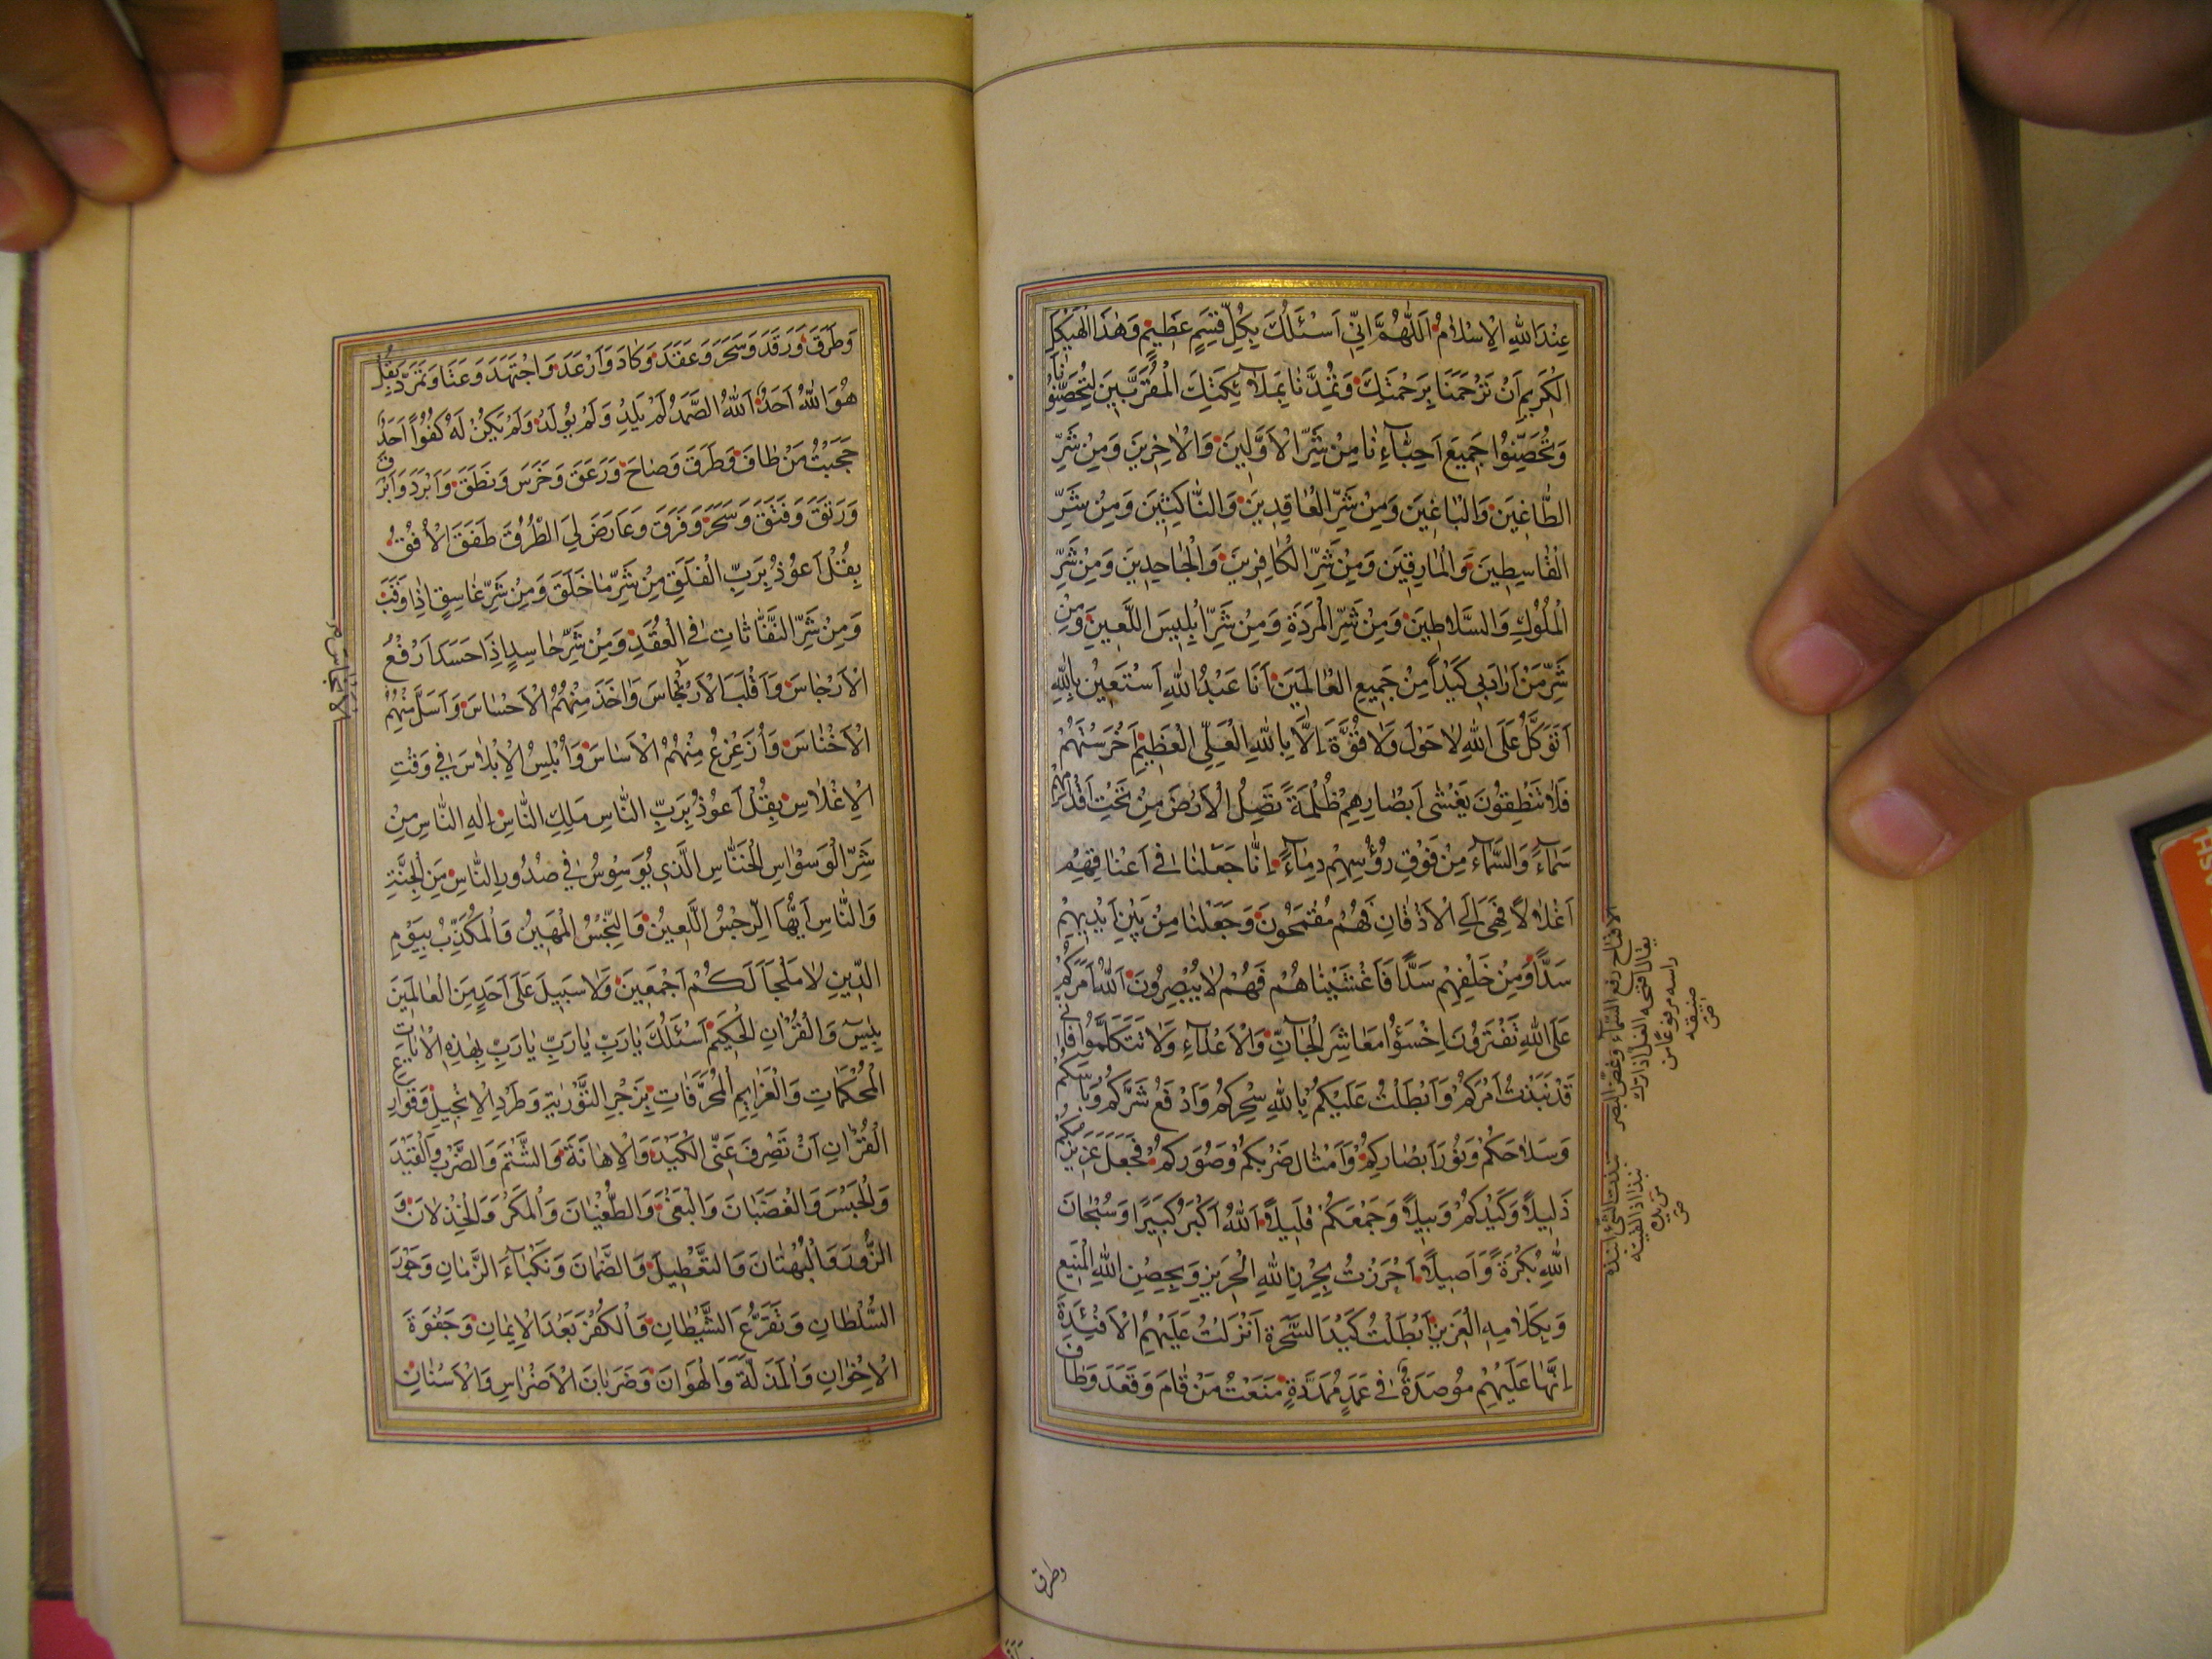 عِنْدَ اللهِ الْاِسْلَامُ اَللّٰهُمَّ اِنّٖي اَسْئَلُكَ بِكُلِّ قَسَمٍ عَظِيمٍ وَهٰذَا الْهَيْكَلِ
الْكَرِيمِ اَنْ تَرْحَمَنَا بِرَحْمَتِكَ وَتُمِدَّنَا بِمَلَآئِكَتِكَ الْمُقَرَّبِينَ لِتُحَصِّنُونَا
وَتُحَصِّنُوا جَمِيعَ اَحِبَّآءِنَا مِنْ شَرِّ الْاَوَّلِينَ وَالْاٰخِرِينَ وَمِنْ شَرِّ
الطَّاغِينَ وَالْبَاغِينَ وَمِنْ شَرِّ الْعَاقِدِينَ وَالنَّاكِثِينَ وَمِنْ شَرِّ
الْقَاسِطِينَ وَالْمَارِقِينَ وَمِنْ شَرِّ الْكَافِرِينَ وَالْجَاحِدِينَ وَمِنْ شَرِّ
الْمُلُوكِ وَالسَّلَاطِينَ وَمِنْ شَرِّ الْمَرَدَةِ وَمِنْ شَرِّ اِبْلِيسَ اللَّعِينِ وَمِنْ
شَرِّ مَنْ اَرَادَ بِي كَيْدًا مِنْ جَمِيعِ الْعَالَمِينَ اَنَا عَبْدُ اللهِ اَسْتَعِينُ بِاللهِ
اَتَوَكَّلُ عَلَى اللهِ لَا حَوْلَ وَلَا قُوَّةَ اِلَّا بِاللهِ الْعَلِيِّ الْعَظِيمِ اَخْرَسْتُهُمْ
فَلَا تَنْطِقُونَ يَغْشٰى اَبْصَارِهِمْ ظُلْمَةً تَصِلُ الْاَرْضَ مِنْ تَحْتِ اَقْدَامِهِمْ
سَمَآءً وَالسَّمَآءَ مِنْ فَوْقِ رُؤُسِهِمْ دِمَآءً اِنَّا جَعَلْنَا فِي اَعْنَاقِهِمْ
اَغْلَالًا فَهِيَ اِلَى الْاَذْقَانِ فَهُمْ مُقْمَحُونَ وَجَعَلْنَا مِنْ بَيْنِ اَيْدِيهِمْ
سَدًّا وَمِنْ خَلْفِهِمْ سَدًّا فَاَغْشَيْنَاهُمْ فَهُمْ لَا يُبْصِرُونَ اَللهُ اَمَرَكُمْ
عَلَى اللهِ تَفْتَرُونَ اِخْسَؤُا مَعَاشِرَ الْجَآنِّ وَالْاَعْدَآءِ وَلَا تَتَكَلَّمُوا فَاِنِّي
قَدْ نَبَذْتُ اَمْرَكُمْ وَاَبْطَلْتُ عَلَيْكُمْ بِاللهِ سِحْرَكُمْ وَاَدْفَعُ شَرَّكُمْ وَبَأْسَكُمْ
وَسَلَاحَكُمْ وَنُوْرَ اَبْصَارِكُمْ وَاَمْثَالَ ضَرْبِكُمْ وَصُوَرِكُمْ فَجَعَلَ عَزِيزَكُمْ
ذَلِيلًا وَكَيْدَكُمْ وَبِيلًا وَجَمْعَكُمْ قَلِيلًا اَللهُ اَكْبَرُ كَبِيرًا وَسُبْحَانَ
اللهِ بُكْرَةً وَاَصِيلًا اَحْرَزْتُ بِحِرْزِ اللهِ الْحَرِيزِ وَبِحِصْنِ اللهِ الْمَنِيعِ
وَبِكَلَامِهِ الْعَزِيزِ اَبْطَلْتُ كَيْدَ السَّحَرَةِ اَنْزَلْتُ عَلَيْهِمُ الْاَفْئِدَةَ
اِنَّهَا عَلَيْهِمْ مُوصَدَةٌ فِي عَمَدٍ مُمَدَّدَةٍ مَنَعْتُ مَنْ قَامَ وَقَعَدَ وَطَافَ
الاقماح رفع الرأس وغض البصر
يقال اقمحه الغل اذا ترك
راسه مرفوعا من
ضيقه
ص
نبذت الشئ انبذه
نبذا اذا القيته
من يدك
ص
وطرق
وَطَرَقَ وَرَقَدَ وَسَحَرَ وَعَقَدَ وَكَادَ وَاَرْعَدَ وَاجْتَهَدَ وَعَتَا وَتَمَرَّدَ بِقُلْ
هُوَ اللهُ اَحَدٌ اَللهُ الصَّمَدُ لَمْ يَلِدْ وَلَمْ يُولَدْ وَلَمْ يَكُنْ لَهُ كُفُوًا اَحَدٌ
حَجَبْتُ مَنْ طَافَ وَطَرَقَ وَصَاحَ وَزَعَقَ وَخَرَسَ وَنَطَقَ وَاَبْرَدَ وَاَبْرَقَ
وَرَتَقَ وَفَتَقَ وَسَحَرَ وَفَرَقَ وَعَارَضَ لِيَ الطُّرُقَ طَفَقَ الْاُفُقُ
بِقُلْ اَعُوذُ بِرَبِّ الْفَلَقِ مِنْ شَرِّ مَا خَلَقَ وَمِنْ شَرِّ غَاسِقٍ اِذَا وَقَبَ
وَمِنْ شَرِّ النَّفَّاثَاتِ فِي الْعُقَدِ وَمِنْ شَرِّ حَاسِدٍ اِذَا حَسَدَ اَرْفَعُ
الْاَرْجَاسَ وَاَقْلَبَ الْاَرْجَاسَ وَاٰخَذَ مِنْهُمُ الْاَحْسَاسَ وَاَسَلَّ مِنْهُمُ
الْاَخْنَاسَ وَاُزَعْزِعُ مِنْهُمُ الْاَسَاسَ وَاُبْلِسُ الْاِبْلَاسَ فِي وَقْتِ
الْاِغْلَاسِ بِقُلْ اَعُوذُ بِرَبِّ النَّاسِ مَلِكِ النَّاسِ اِلٰهِ النَّاسِ مِنْ
شَرِّ الْوَسْوَاسِ الْخَنَّاسِ الَّذِي يُوَسْوِسُ فِي صُدُورِ النَّاسِ مِنَ الْجِنَّةِ
وَالنَّاسِ اَيُّهَا الرِّجْسُ اللَّعِينُ وَالنِّجْسُ الْمَهِينُ وَالْمُكَذِّبُ بِيَوْمِ
الدِّينِ لَا مَلْجَاَ لَكُمْ اَجْمَعِينَ وَلَا سَبِيلَ عَلَى اَحَدٍ مِنَ الْعَالَمِينَ
بِيٰسٓ وَالْقُرْاٰنِ الْحَكِيمِ اَسْئَلُكَ يَا رَبِّ يَا رَبِّ يَا رَبِّ بِهٰذِهِ الْاٰيَاتِ
الْمُحْكَمَاتِ وَالْعَزَايِمِ الْمُحْرَقَاتِ بِزَجْرِ التَّوْرٰيةِ وَطَرْدِ الْاِنْجِيلِ وَقَوَارِعِ
الْقُرْاٰنِ اَنْ تَصْرِفَ عَنِّي الْكَيْدَ وَالْاِهَانَةَ وَالشَّتْمَ وَالضَّرْبَ وَالْقَيْدَ
وَالْحَبْسَ وَالْغَضَبَانَ وَالْبَغْيَ وَالطُّغْيَانَ وَالْمَكْرَ وَالْخِذْلَانَ وَ
الزُّورَ وَالْبُهْتَانَ وَالتَّعْطِيلَ وَالضَّمَانَ وَنَكْبَآءَ الزَّمَانِ وَجَوْرَ
السُّلْطَانِ وَتَفَزُّعَ الشَّيْطَانِ وَالْكُفْرَ بَعْدَ الْاِيمَانِ وَجَفْوَةَ
الْاِخْوَانِ وَالْمَذَلَّةَ وَالْهَوَانَ وَضَرَبَانَ الْاَضْرَاسِ وَالْاَسْنَانِ